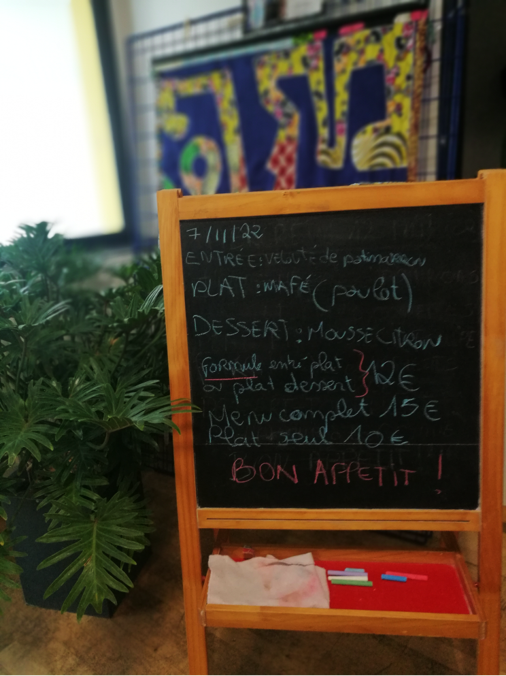 7/11/22
ENTRÉE: VELOUTÉ de potimarron
PLAT : MAFÉ (poulet)
DESSERT : MOUSSE CITRON
formule entré plat } 12€
ou plat dessert
Menu complet 15€
Plat seul 10€
BON APPETIT !